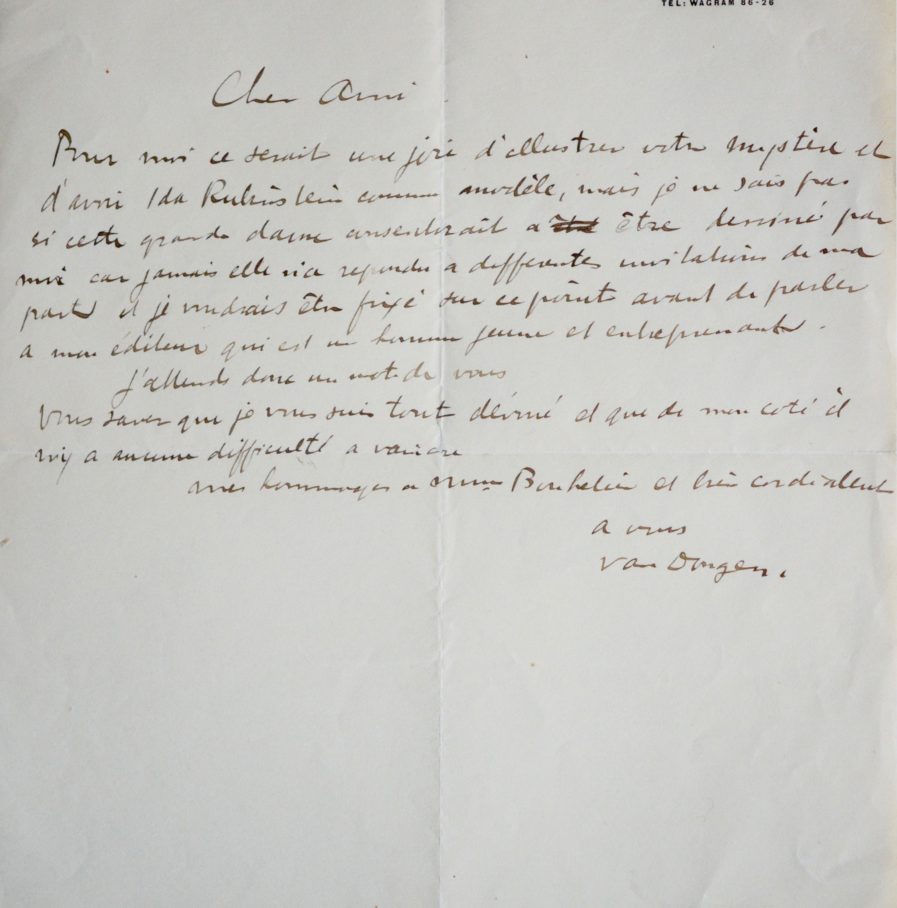 TEL: WAGRAM 86-26
Cher Ami
Pour moi ce serait une joie d'illustrer votre mystère et
d'avoir Ida Rubinstein comme modèle, mais je ne sais pas
si cette grande dame consenterait a être dessiné par
moi car jamais elle n'a repondu a differentes invitations de ma
part et je voudrais être fixé sur ce point avant de parler
a mon éditeur qui est un homme jeune et entreprenant.
J'attends donc un mot de vous
Vous savez que je vous suis tout dévoué et que de mon coté il
n'y a aucune difficulté a vaincre
mes hommages a Mme Bouhelier et bien cordialement
a vous
Van Dongen.